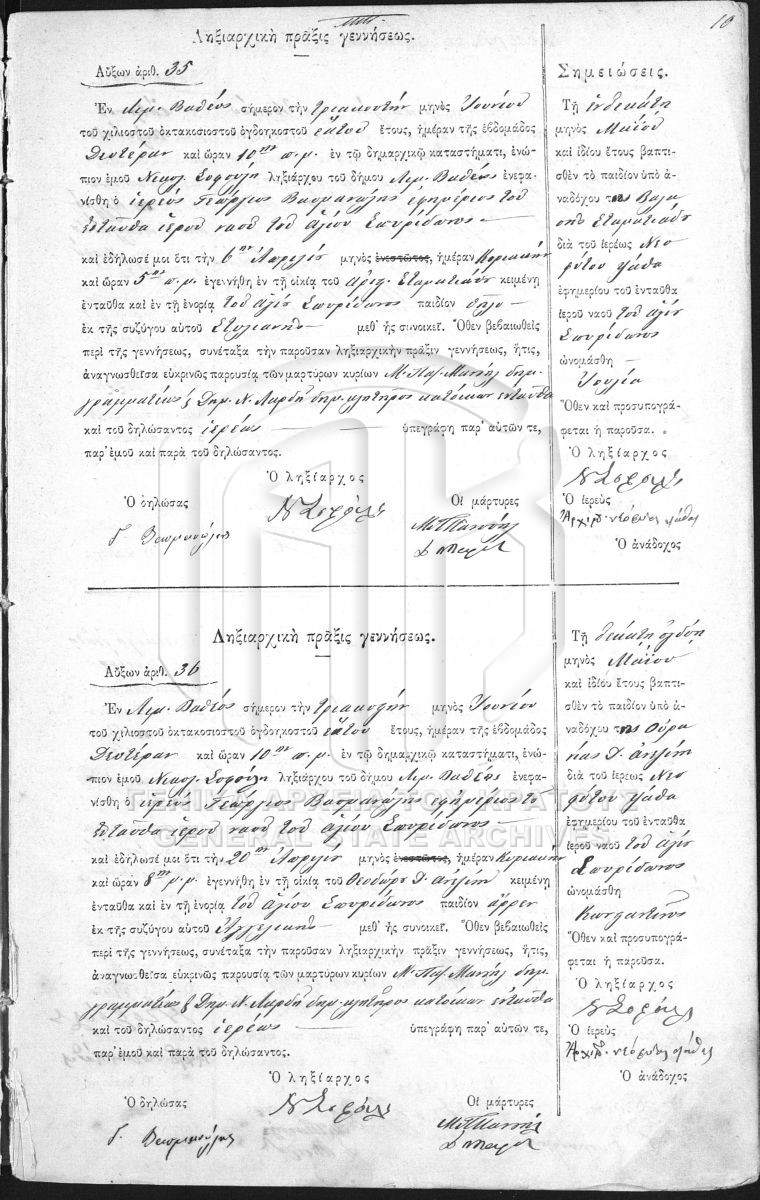 10
Ληξιαρχικὴ πρᾶξις γεννήσεως.
Αὔξων ἀριθ. 35
Ἐν Λιμ. Βαθέος σήμερον τὴν τριακοστὴν μηνὸς Ἰουνίου
τοῦ χιλιοστοῦ ὀκτακοσιοστοῦ ὀγδοηκοστοῦ ἕκτου ἔτους, ἡμέραν τῆς ἑβδομάδος
Δευτέραν καὶ ὥραν 10ην π.μ. ἐν τῷ δημαρχικῷ καταστήματι, ἐνώ-
πιον ἐμοῦ Νικολ. Σοφούλη ληξιάρχου τοῦ δήμου Λιμ. Βαθέος ἐνεφα-
νίσθη ὁ ἱερεὺς Γεώργιος ἐφημέριος τοῦ
ἐνταῦθα ἱεροῦ ναοῦ τοῦ Ἁγίου Σπυρίδωνος
καὶ ἐδήλωσέ μοι ὅτι τὴν 6ην Ἀπριλίου μηνὸς ἐνεστῶτος, ἡμέραν Κυριακὴν
καὶ ὥραν 5ην π.μ. ἐγεννήθη ἐν τῇ οἰκίᾳ τοῦ Ἀριστ. Σταματιάδου κειμένῃ
ἐνταῦθα καὶ ἐν τῇ ἐνορίᾳ τοῦ Ἁγίου Σπυρίδωνος παιδίον θῆλυ
ἐκ τῆς συζύγου αὐτοῦ Στυλιανῆς μεθ' ἧς συνοικεῖ. Ὅθεν βεβαιωθεὶς
περὶ τῆς γεννήσεως, συνέταξα τὴν παροῦσαν ληξιαρχικὴν πρᾶξιν γεννήσεως, ἥτις,
ἀναγνωσθεῖσα εὐκρινῶς παρουσίᾳ τῶν μαρτύρων κυρίων Μ. Παπ. Μανώλη δημ.
γραμματέως & Δημ. Ν. Λαρδῆ δημ. κλητῆρος κατοίκων ἐνταῦθα
καὶ τοῦ δηλώσαντος ἱερέως ὑπεγράφη παρ' αὐτῶν τε,
παρ' ἐμοῦ καὶ παρὰ τοῦ δηλώσαντος.
Ὁ ληξίαρχος
Ὁ δηλώσας
Οἱ μάρτυρες
Ν Σοφούλης
Σημειώσεις.
Τῇ ἑνδεκάτῃ
μηνὸς Μαΐου
καὶ ἰδίου ἔτους βαπτι-
σθὲν τὸ παιδίον ὑπὸ ἀ-
ναδόχου της
Σταματιάδου
διὰ τοῦ ἱερέως Νεο
φύτου
ἐφημερίου τοῦ ἐνταῦθα
ἱεροῦ ναοῦ τοῦ Ἁγίου
Σπυρίδωνος
ὠνομάσθη
Ἰουλία
Ὅθεν καὶ προσυπογρά-
φεται ἡ παροῦσα.
Ὁ ληξίαρχος
Ν Σοφούλης
Ὁ ἱερεὺς
Ὁ ἀνάδοχος
Ληξιαρχικὴ πρᾶξις γεννήσεως.
Αὔξων ἀριθ. 36
Ἐν Λιμ. Βαθέος σήμερον τὴν τριακοστὴν μηνὸς Ἰουνίου
τοῦ χιλιοστοῦ ὀκτακοσιοστοῦ ὀγδοηκοστοῦ ἕκτου ἔτους, ἡμέραν τῆς ἑβδομάδος
Δευτέραν καὶ ὥραν 10ην π.μ. ἐν τῷ δημαρχικῷ καταστήματι, ἐνώ-
πιον ἐμοῦ Νικολ. Σοφούλη ληξιάρχου τοῦ δήμου Λιμ. Βαθέος ἐνεφα-
νίσθη ὁ ἱερεὺς Γεώργιος ἐφημέριος τοῦ
ἐνταῦθα ἱεροῦ ναοῦ τοῦ Ἁγίου Σπυρίδωνος
καὶ ἐδήλωσέ μοι ὅτι τὴν 20ην Ἀπριλίου μηνὸς ἐνεστῶτος, ἡμέραν Κυριακὴν
καὶ ὥραν 8ην μ.μ. ἐγεννήθη ἐν τῇ οἰκίᾳ τοῦ Θεοδώρου κειμένῃ
ἐνταῦθα καὶ ἐν τῇ ἐνορίᾳ τοῦ Ἁγίου Σπυρίδωνος παιδίον ἄρρεν
ἐκ τῆς συζύγου αὐτοῦ Ἀγγελικῆς μεθ' ἧς συνοικεῖ. Ὅθεν βεβαιωθεὶς
περὶ τῆς γεννήσεως, συνέταξα τὴν παροῦσαν ληξιαρχικὴν πρᾶξιν γεννήσεως, ἥτις,
ἀναγνωσθεῖσα εὐκρινῶς παρουσίᾳ τῶν μαρτύρων κυρίων Μ. Παπ. Μανώλη δημ.
γραμματέως & Δημ. Ν. Λαρδῆ δημ. κλητῆρος κατοίκων ἐνταῦθα
καὶ τοῦ δηλώσαντος ἱερέως ὑπεγράφη παρ' αὐτῶν τε,
παρ' ἐμοῦ καὶ παρὰ τοῦ δηλώσαντος.
Ὁ ληξίαρχος
Ὁ δηλώσας
Οἱ μάρτυρες
Ν Σοφούλης
Τῇ δεκάτῃ ὀγδόῃ
μηνὸς Μαΐου
καὶ ἰδίου ἔτους βαπτι-
σθὲν τὸ παιδίον ὑπὸ ἀ-
ναδόχου της Οὐρα
νίας
διὰ τοῦ ἱερέως Νεο
φύτου
ἐφημερίου τοῦ ἐνταῦθα
ἱεροῦ ναοῦ τοῦ Ἁγίου
Σπυρίδωνος
ὠνομάσθη
Κωνσταντῖνος
Ὅθεν καὶ προσυπογρά-
φεται ἡ παροῦσα.
Ὁ ληξίαρχος
Ν Σοφούλης
Ὁ ἱερεὺς
Ὁ ἀνάδοχος
ΓΕΝΙΚΑ ΑΡΧΕΙΑ ΤΟΥ ΚΡΑΤΟΥΣ
GENERAL STATE ARCHIVES